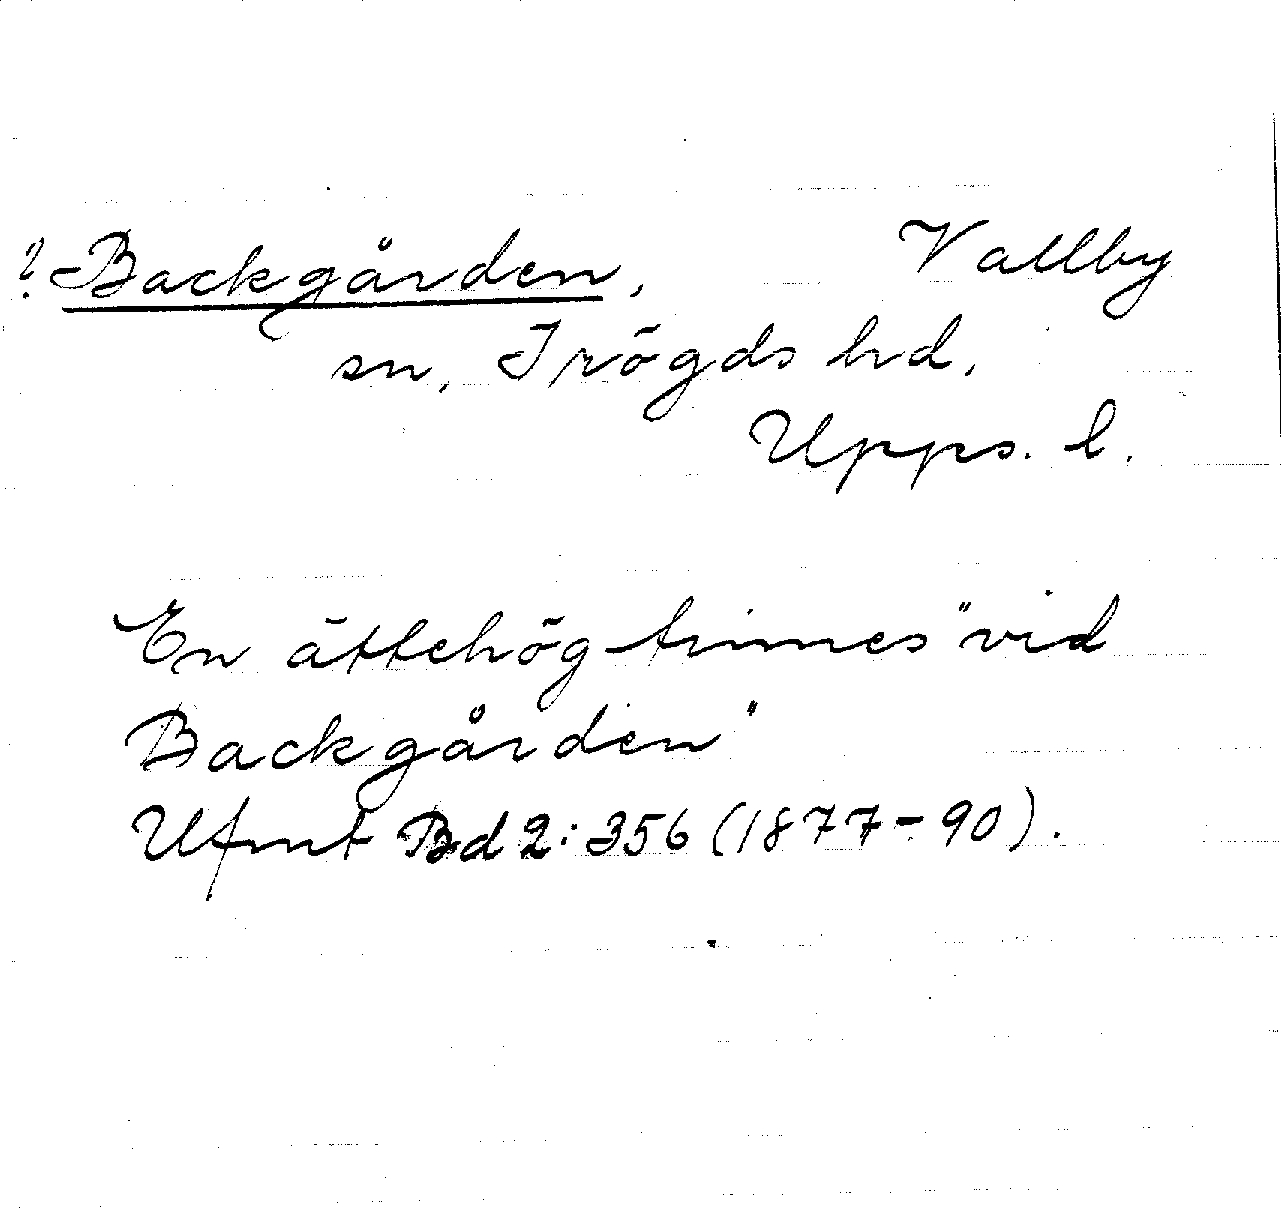 ? Backgården, Vallby
sn, Trögds hd,
Upps. l.
En ättehög finnes "vid
Backgården"
Ufmt Bd 2:356 (1877-90).